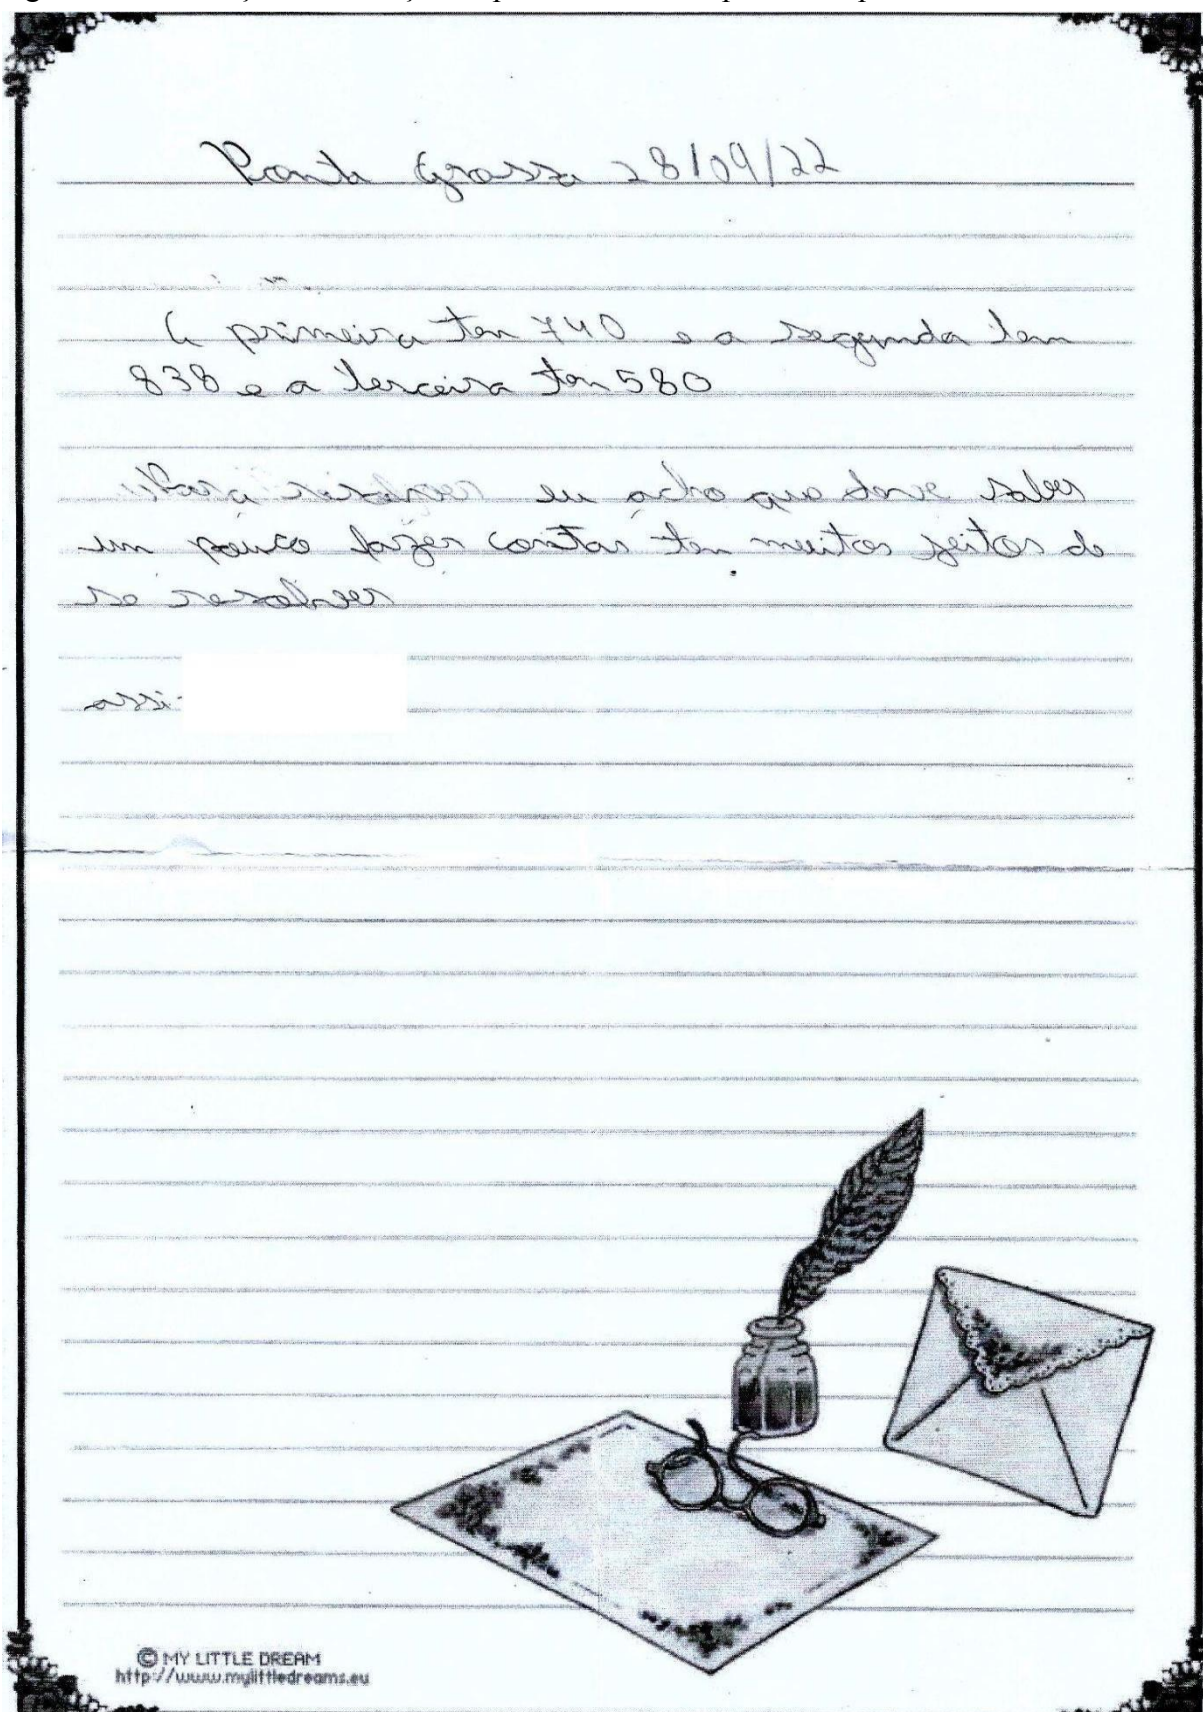 Ponta Grossa 28/09/22
A primeira tem 740 e a segunda tem
838 e a terceira tem 580
Para resolver eu acho que deve saber
um pouco fazer contas tem muitos jeitos de
se resolver
assi-
© MY LITTLE DREAM
http://www.mylittledreams.eu